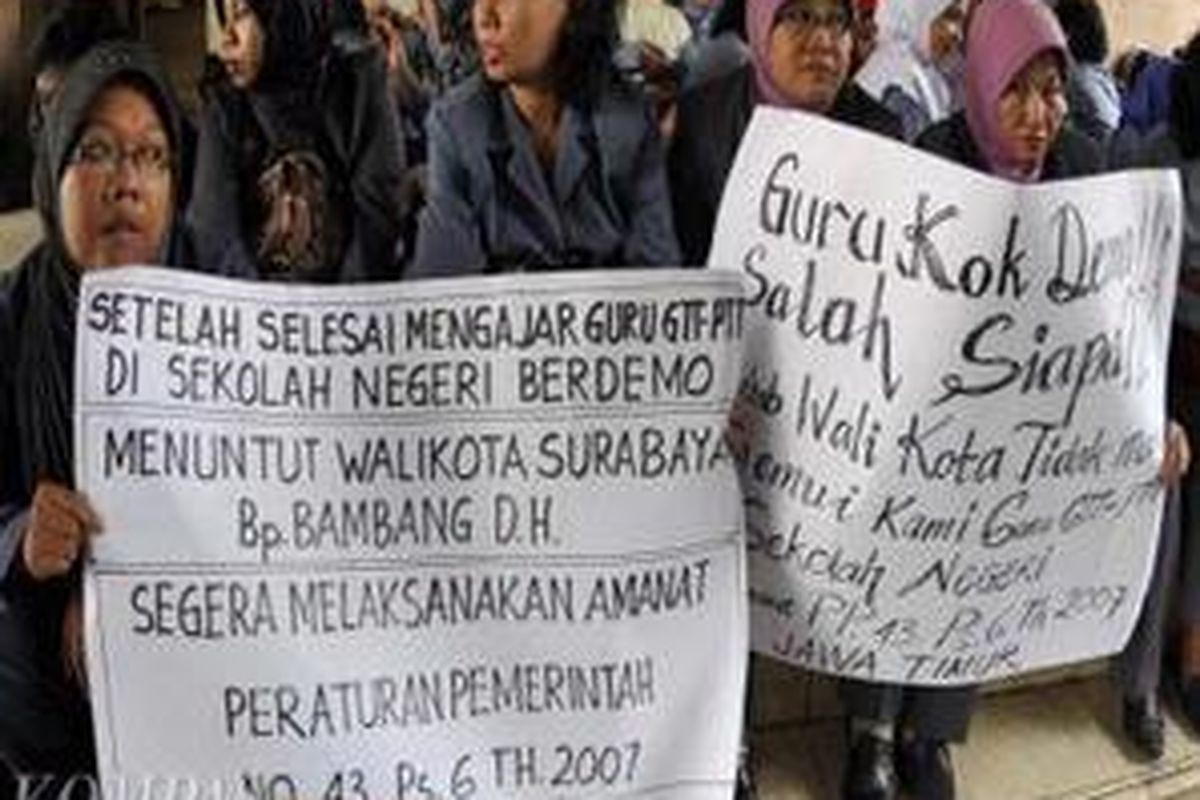 SETELAH SELESAI MENGAJAR GURU GTT-PTT
DI SEKOLAH NEGERI BERDEMO
MENUNTUT WALIKOTA SURABAYA
Bp. BAMBANG D.H.
SEGERA MELAKSANAKAN AMANAT
PERATURAN PEMERINTAH
NO. 43 Ps. 6 TH. 2007
Guru Kok
Salah Siapa
Wali Kota Tidak
Kami Guru
Sekolah NEGERI
PP. 43 Ps. 6 TH 2007
JAWA TIMUR